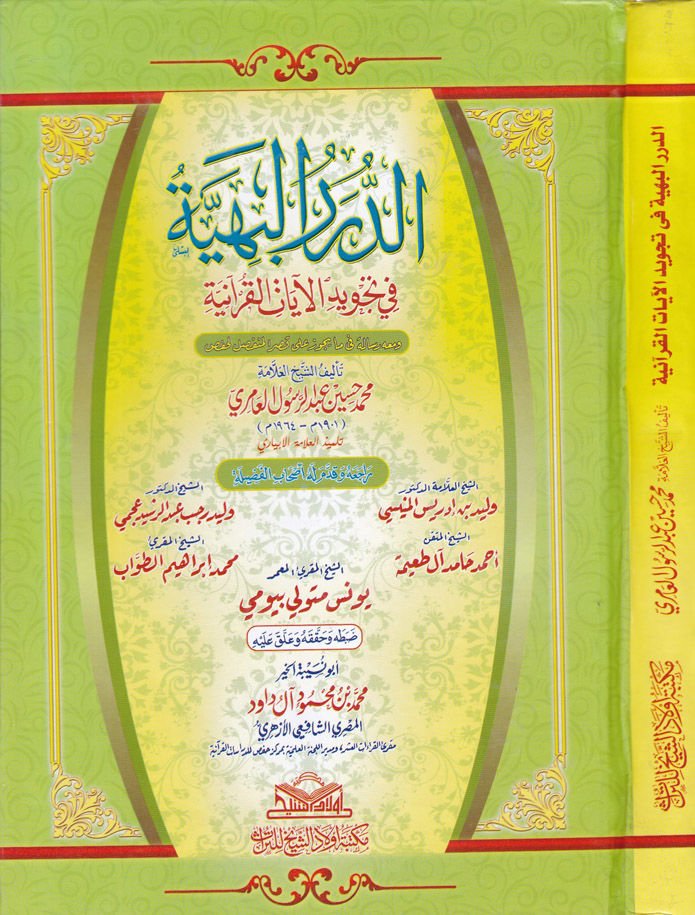 الدُّرَرُ البَهِيَّةُ
في تجويد الآيات القرآنية
ومعه رسالة في ما يجوز على قصر المنفصل لحفص
تأليف الشيخ العلامة
محمد حسين عبد الرسول العامري
(١٩٠١م - ١٩٦٤م)
تلميذ العلامة الابياري
راجعه وقدم له أصحاب الفضيلة
الشيخ العلامة الدكتور
وليد بن إدريس المنيسي
الشيخ الدكتور
وليد رجب عبد الرشيد عجمي
الشيخ المتقن
أحمد حامد آل طعيمة
الشيخ المقرئ
محمد إبراهيم الطواب
الشيخ المقرئ المعمر
يونس متولي بيومي
ضبطه وحققه وعلق عليه
أبو نسيبة الخير
محمد بن محمود آل داود
المصري الشافعي الأزهري
مقرئ القراءات العشر، ومدير اللجنة العلمية بمركز حفص للدراسات القرآنية
أولاد الشيخ
مكتبة أولاد الشيخ للتراث
الدرر البهية فى تجويد الآيات القرآنية
تأليف الشيخ العلامة
محمد حسين عبد الرسول العامري
مكتبة أولاد الشيخ للتراث